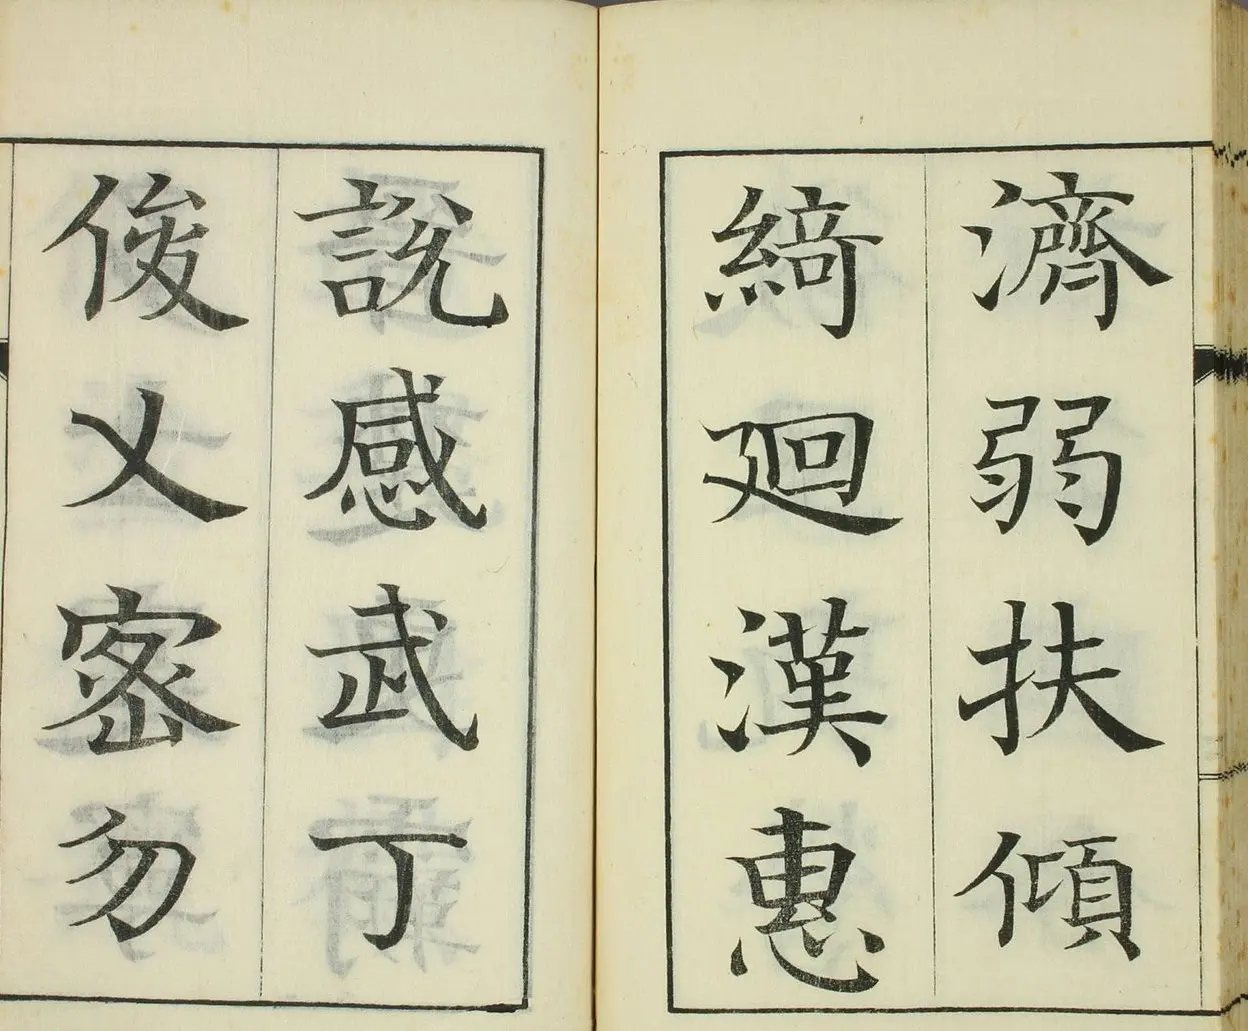 濟弱扶傾
綺廻漢惠
說感武丁
俊乂密勿